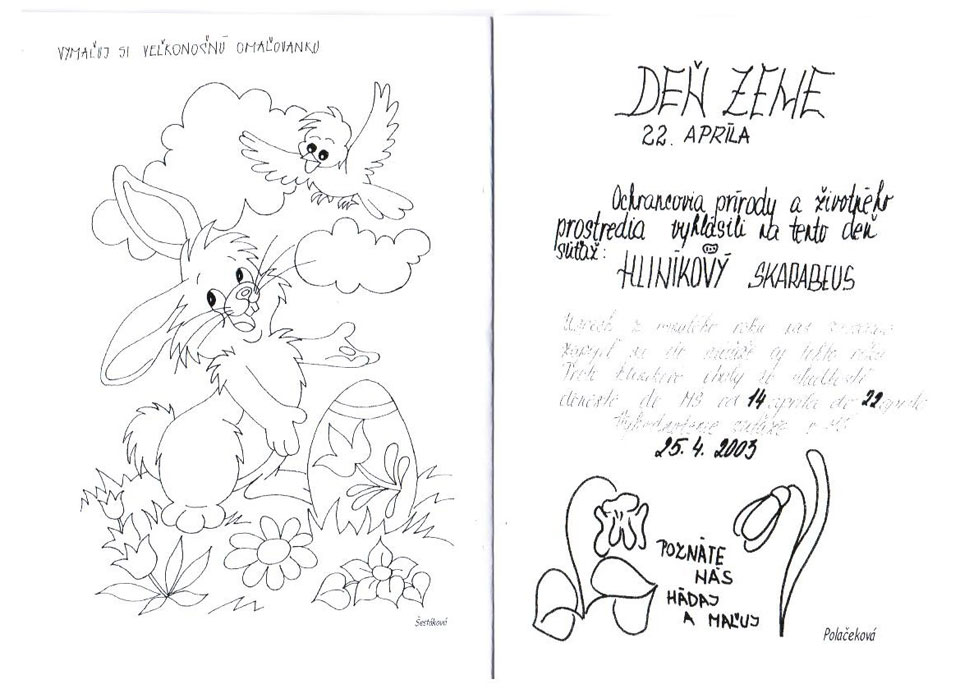 VYMAĽUJ SI VEĽKONOČNÚ OMAĽOVANKU
Šestáková
DEŇ ZEME
22. APRÍLA
Ochrancovia prírody a životného
prostredia vyhlásili na tento deň
súťaž:
HLINÍKOVÝ SKARABEUS
z minulého roku nás
zapojiť sa do súťaže aj tohto roku
doneste do MŠ od 14 apríla do 22 apríla
Vyhodnotenie súťaže v MŠ
25. 4. 2003
POZNÁTE
NÁS
HÁDAJ
A MAĽUJ
Polačeková